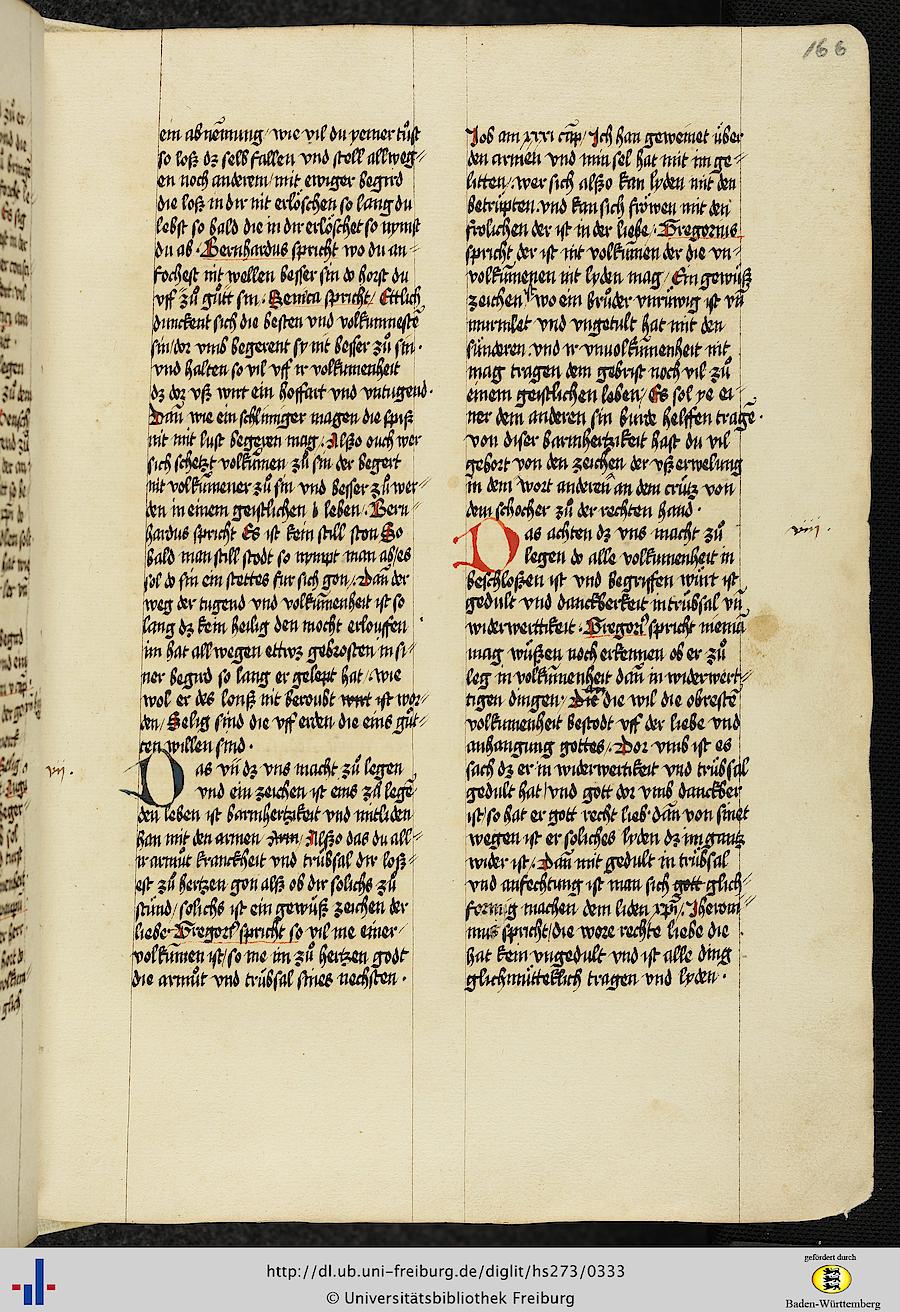 166
ein abnēmung / wie vil du yemer tůst
so loß dz selb fallen vnd stell allweg⸗
en noch anderem / mit ewiger begird
die loß in dir nit erlöschen so lang du
lebst so bald die in dir erlöschet so nymst
du ab · Bernhardus spricht wo du an⸗
fochest nit wollen besser sin do horst du
vff zů gůtt sin · Seneca spricht / Ettlich
dunckent sich die besten vnd volkumnestē
sin / dor vmb begerent sy nit besser zů sin ·
vnd halten so vil vff ir volkumenheit
dz dor vß wirt ein hoffart vnd vntugend ·
Dañ wie ein schlimiger magen die spiß
nit mit lust begeren mag / Alßo ouch wer
sich schetzt volkūmen zů sin der begert
nit volkumener zů sin vnd besser zů wer⸗
den in einem geistlichen leben / Bern
hardus spricht Es ist kein still ston So
bald man still stodt so nympt man ab / es
sol do sin ein stettes fur sich gon / Dañ der
weg der tugend vnd volkūmenheit ist so
lang dz kein heilig den mocht erlouffen
im hat allwegen ettwz gebrosten in si⸗
ner begird so lang er gelept hat / wie
wol er des lonß nit beroubt ist wor⸗
den / Selig sind die vff erden die eins gůt⸗
ten willen sind ·
vii ·
Das vii dz vns macht zů legen
vnd ein zeichen ist eins zů legē
den leben ist barmhertzikeit vnd mitliden
han mit den armen / Alßo das du all⸗
ir armůt kranckheit vnd trůbsal dir loß⸗
est zů hertzen gon alß ob dir solichs zů
stůnd / solichs ist ein gewůß zeichen der
liebe Gregorꝰ spricht so vil me einer⸗
volkūmen ist / so me im zů hertzen godt
die armůt vnd trůbsal sines nechsten ·
Iob am xxxi cāp / Ich han geweinet über
den armen vnd min sel hat mit im ge⸗
litten / wer sich alßo kan lyden mit den
betrüpten · vnd kan sich fröwen mit den
frolichen der ist in der liebe / Gregorius
spricht der ist nit volkūmen der die vn⸗
volkūmenen nit lyden mag / Ein gewůß
zeichen wo ein brůder vnrůwig ist vn̄
murmlet vnd vngetult hat mit den
sünderen · vnd ir vnuolkūmenheit nit
mag tragen dem gebrist noch vil zů
einem geistlichen leben / Es sol ye ei⸗
ner dem anderen sin burde helffen tragē ·
von diser barmhertzikeit hast du vil
gehort von den zeichen der vß erwelung
in dem wort anderen an dem crütz von
dem schocher zů der rechten hand ·
viii ·
Das achten dz vns macht zů
legen do alle volkumenheit in
beschloßen ist vnd begriffen würt ist
gedult vnd danckberkeit in trübsal vn̄
widerwerttikeit · Gregorꝰ spricht niemā
mag wüßen noch erkennen ob er zů
leg in volkūmenheit dañ in widerwert⸗
tigen dingen / die wil die obrestē
volkumenheit bestodt vff der liebe vnd
anhangung gottes / Dor vmb ist es
sach dz er in widerwertikeit vnd trübsal
gedult hat / vnd gott dor vmb danckber
ist / so hat er gott recht lieb · dañ von sinet
wegen ist er soliches lyden dz im gantz
wider ist / Dañ mit gedult in trübsal
vnd anfechtung ist man sich gott glich⸗
formig machen dem liden xp̄i / Iheroni
mus spricht / die wore rechte liebe die
hat kein vngedult vnd ist alle ding
glichmütteklich tragen vnd lyden ·
http://dl.ub.uni-freiburg.de/diglit/hs273/0333
© Universitätsbibliothek Freiburg
gefördert durch
Baden-Württemberg